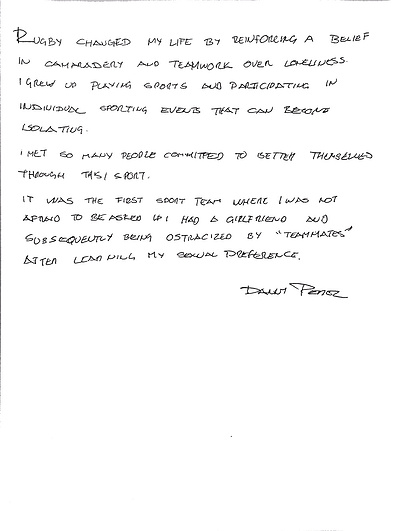 RUGBY CHANGED MY LIFE BY REINFORCING A BELIEF
IN CAMARADERY AND TEAMWORK OVER LONELINESS.
I GREW UP PLAYING SPORTS AND PARTICIPATING IN
INDIVIDUAL SPORTING EVENTS THAT CAN BECOME
ISOLATING.
I MET SO MANY PEOPLE COMMITTED TO BETTER THEMSELVES
THROUGH THIS SPORT.
IT WAS THE FIRST SPORT TEAM WHERE I WAS NOT
AFRAID TO BE ASKED IF I HAD A GIRLFRIEND AND
SUBSEQUENTLY BEING OSTRACIZED BY "TEAMMATES"
AFTER LEARNING MY SEXUAL PREFERENCE.
DANNY PEREZ